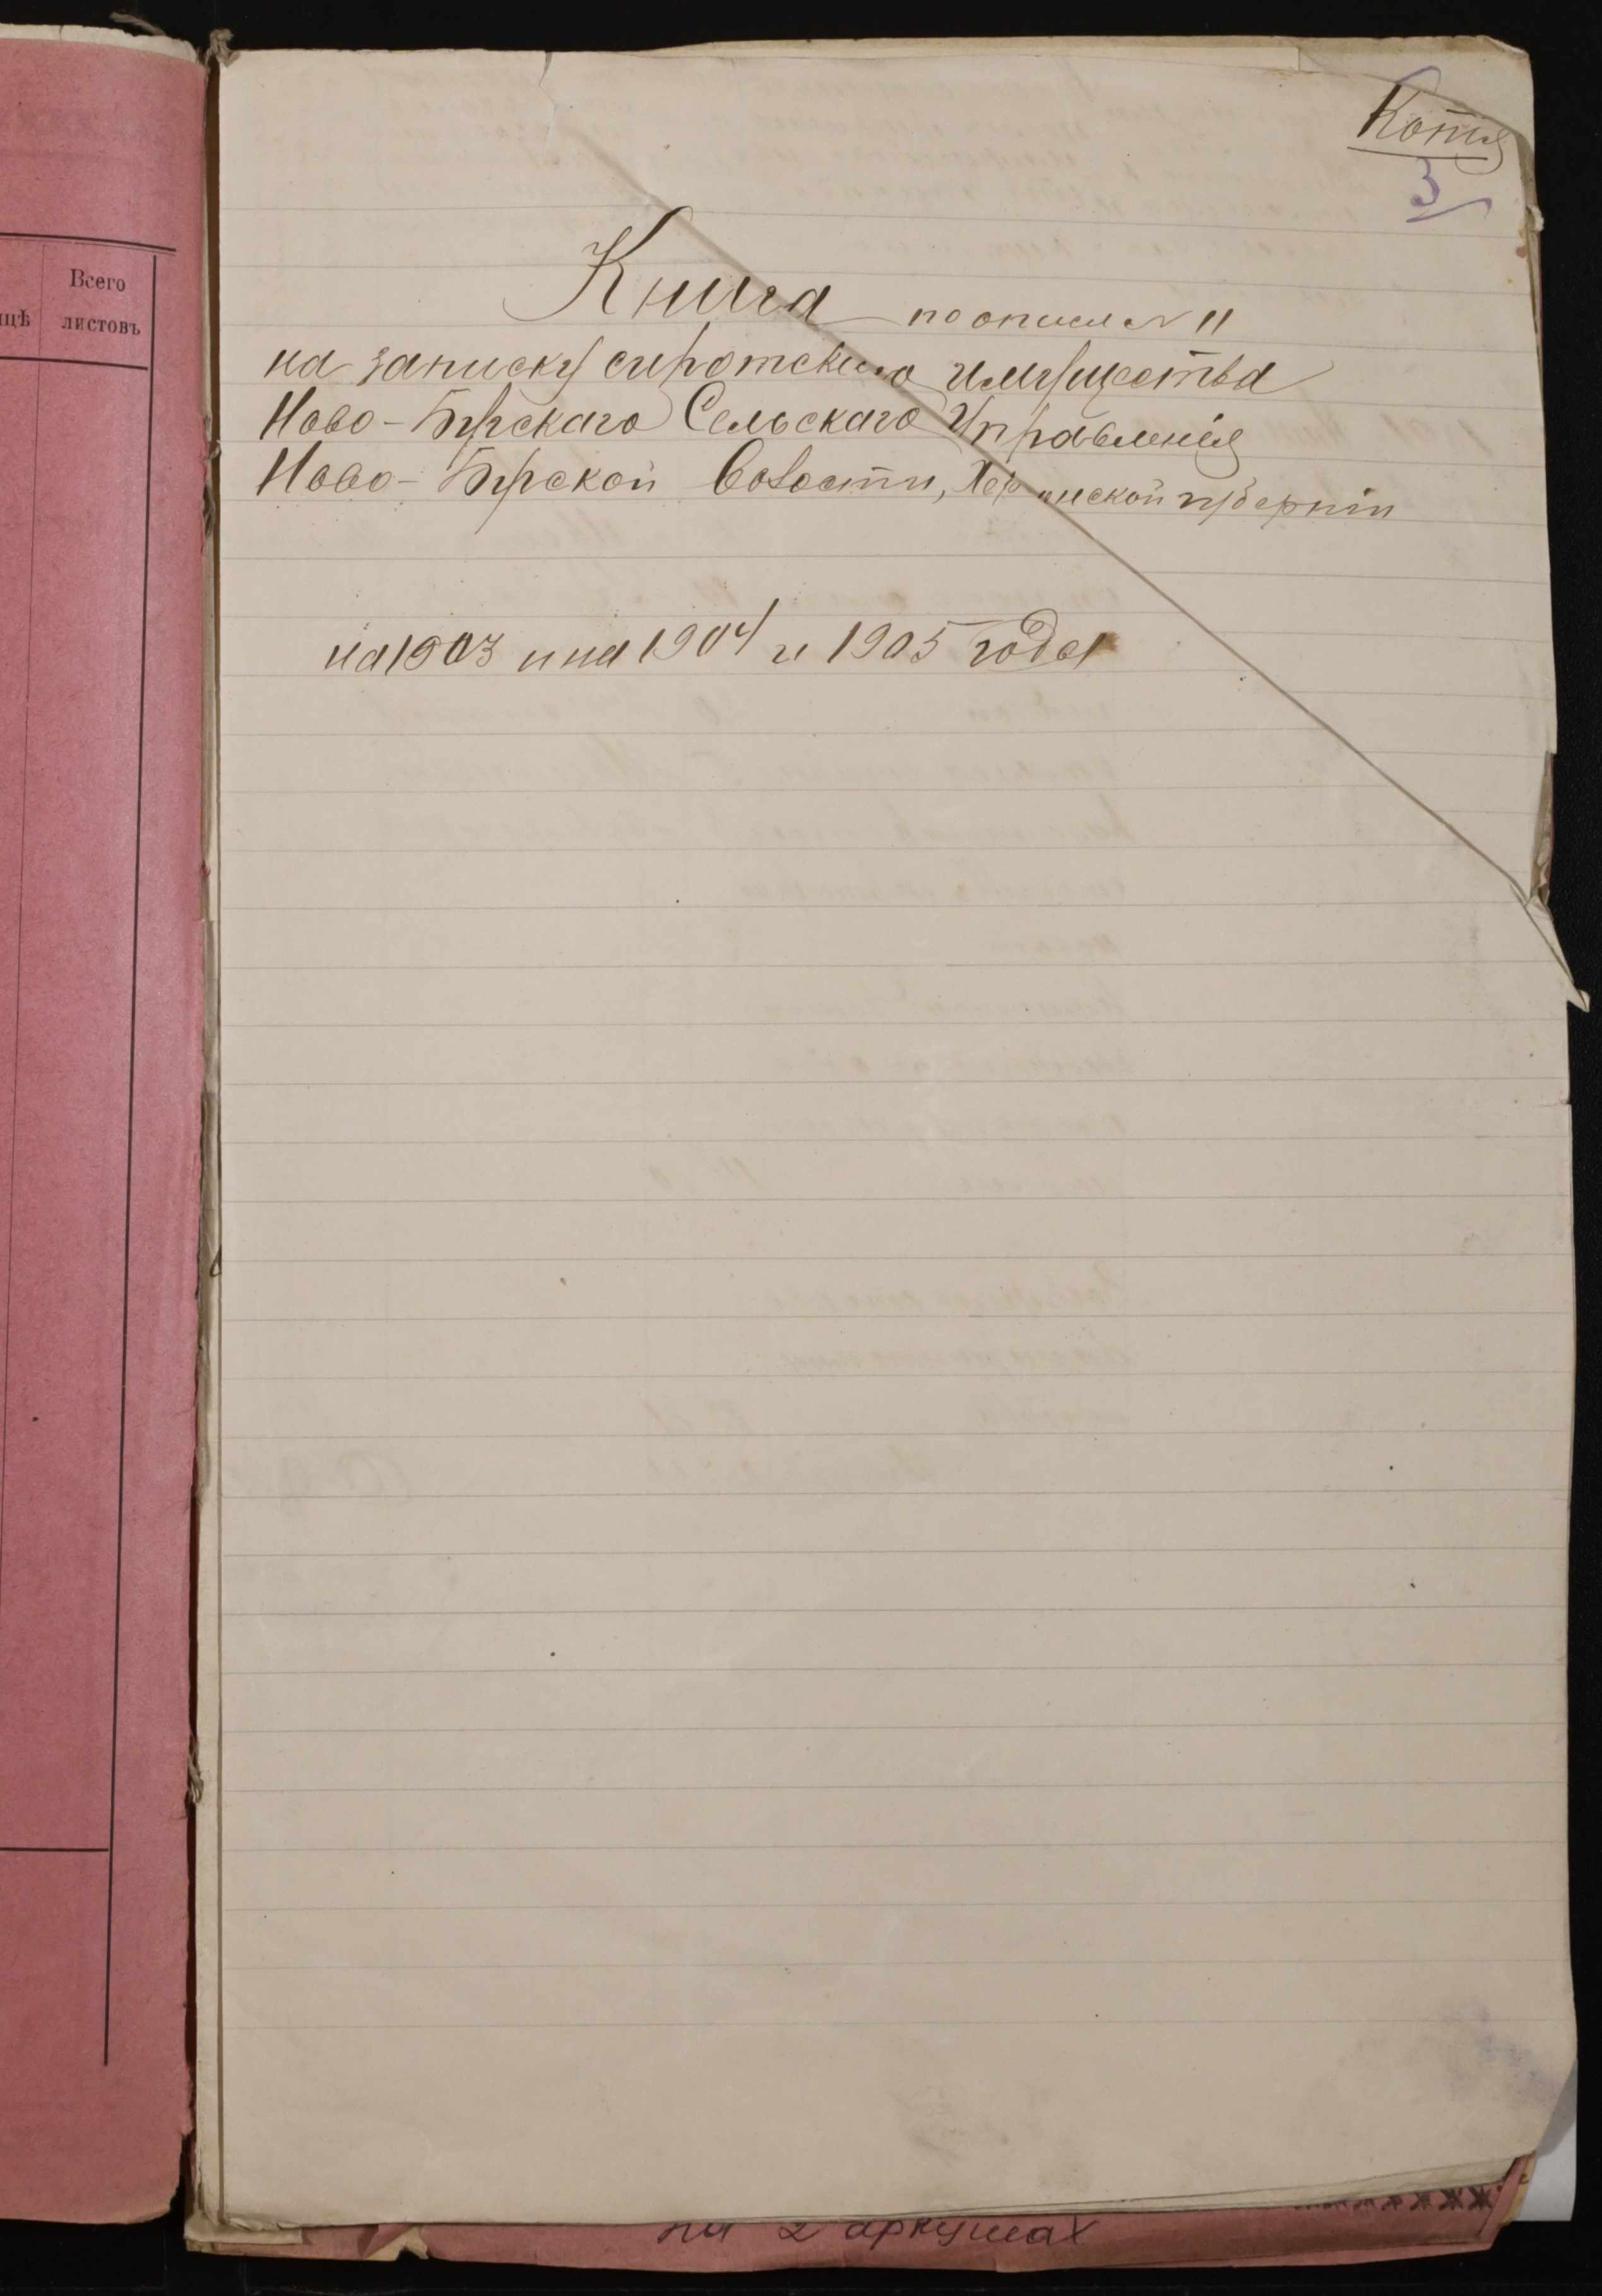 Копія
3
Книга по описи № 11
на записку сиротскаго имущества
Ново-Бугскаго Сельскаго Управленія
Ново-Бугской Волости, Херсонской губерніи
на 1903 и на 1904 и 1905 годы
Всего
листовъ
на 2 аркушах